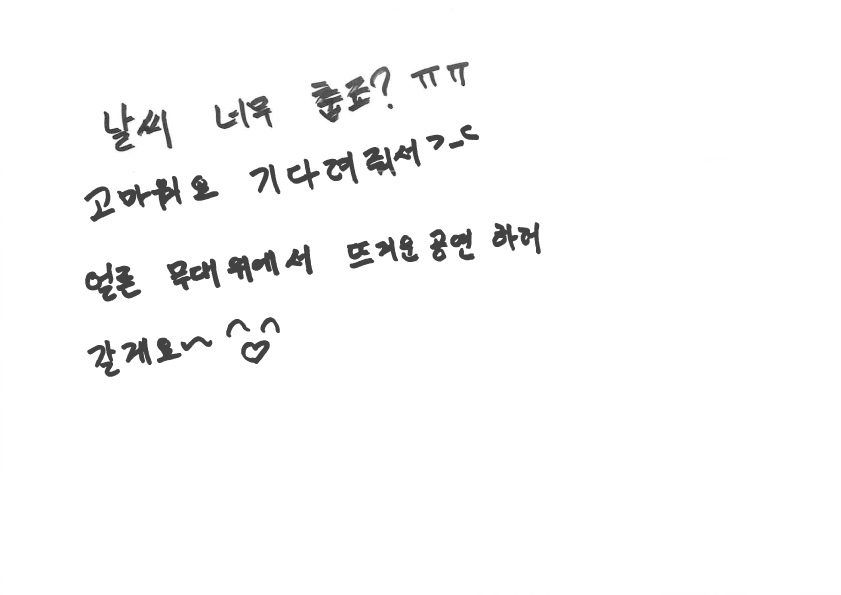 날씨 너무 춥죠? ㅠㅠ
고마워요 기다려줘서 >_<
얼른 무대 위에서 뜨거운 공연 하러
갈게요~ ^♡^